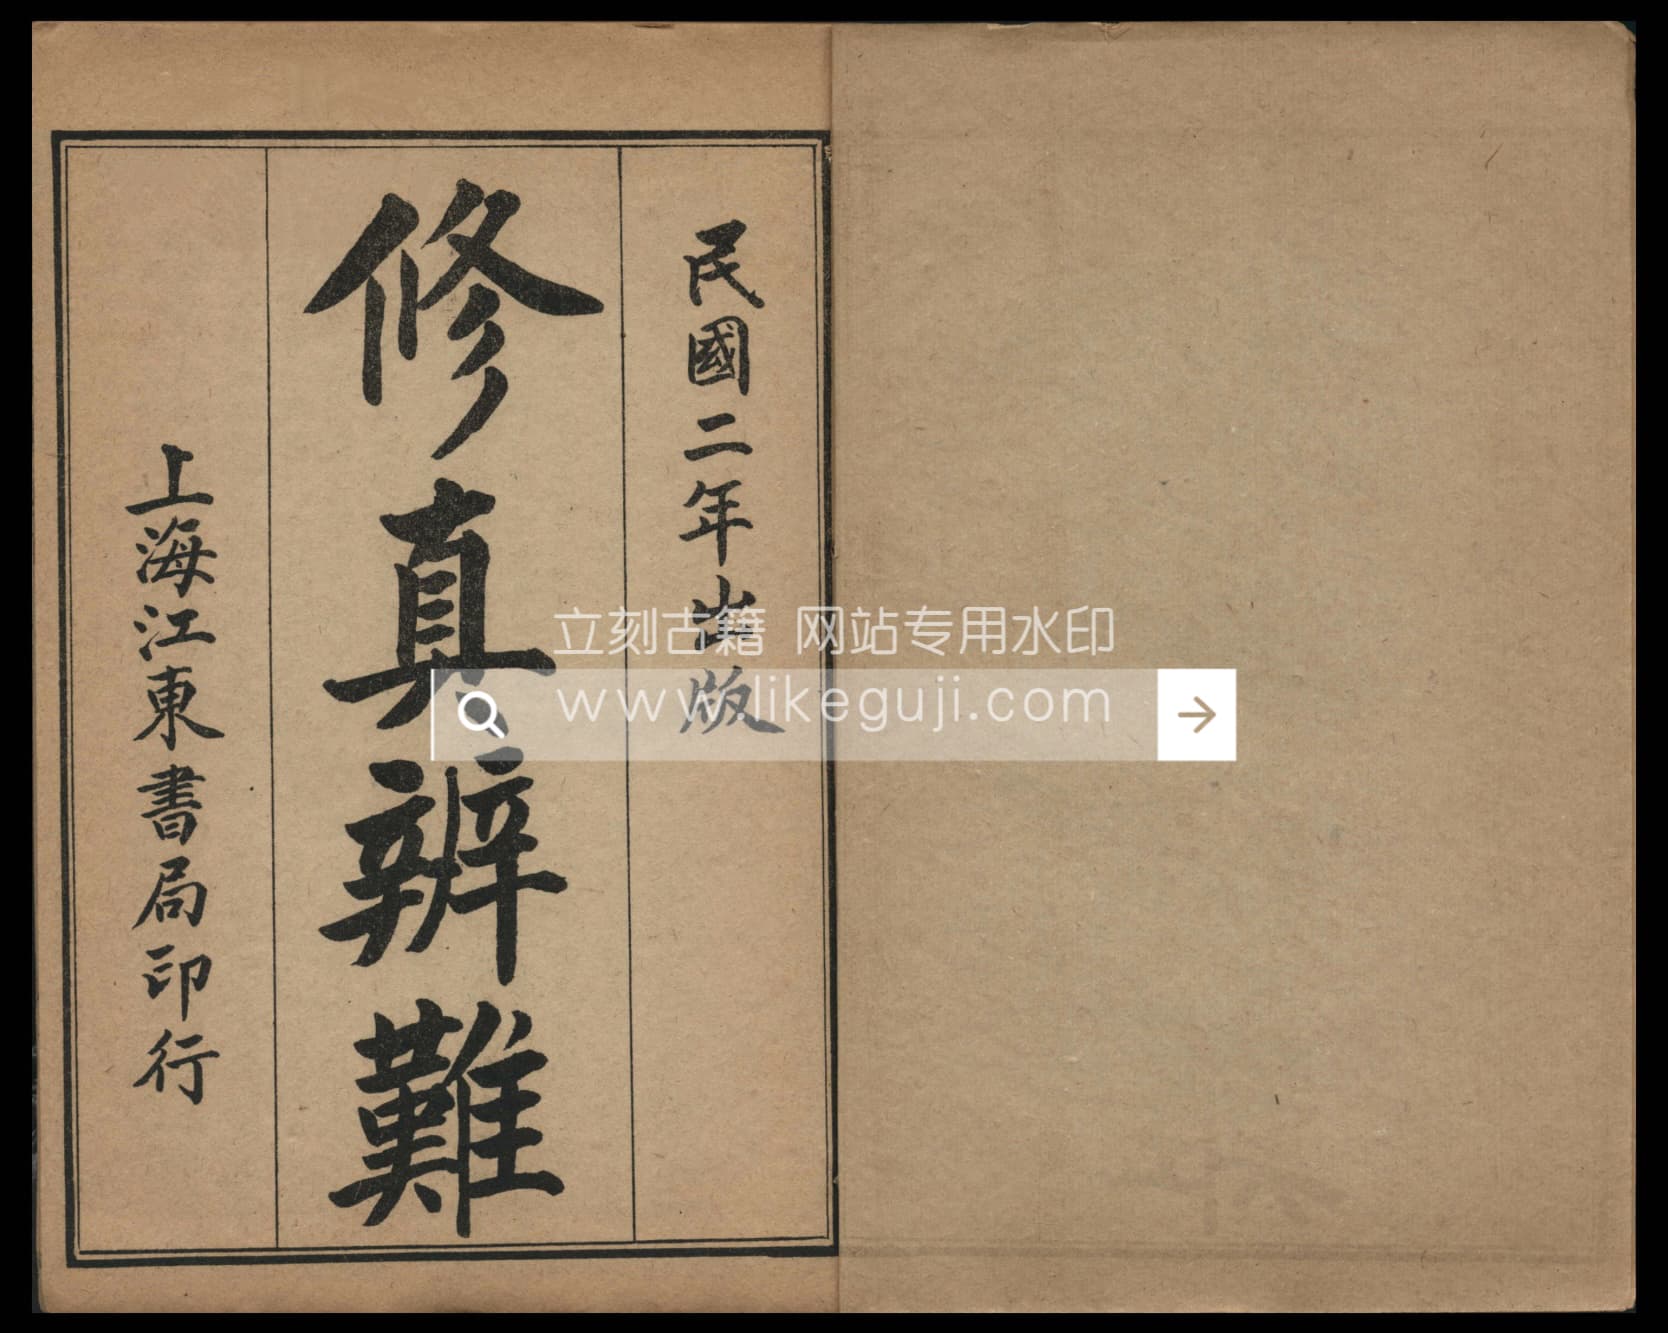 民國二年出版
修真辨難
上海江東書局印行
立刻古籍 网站专用水印
www.likeguji.com